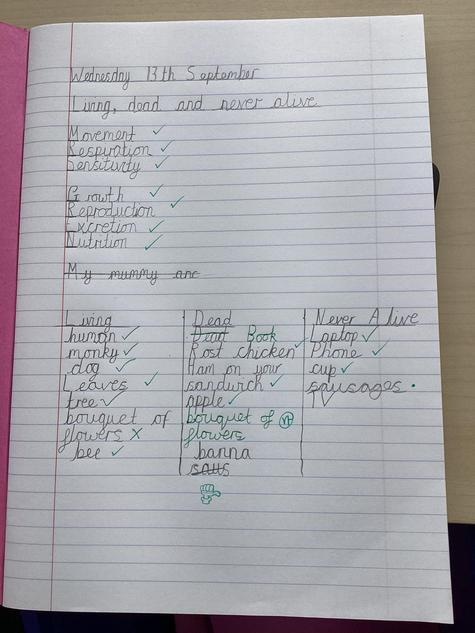 Wednesday 13th September
Living, dead and never alive
Movement ✓
Respiration ✓
Sensitivity ✓
Growth ✓
Reproduction ✓
Excretion ✓
Nutrition ✓
My mummy and
Living
human ✓
monky ✓
dog ✓
Leaves ✓
tree ✓
bouquet of
flowers x
bee ✓
Dead
Book
Rost chicken ✓
Ham on your
sandwich ✓
apple ✓
bouquet of
flowers
banna
saus
Never Alive
Laptop ✓
Phone ✓
cup ✓
sausages •
TV